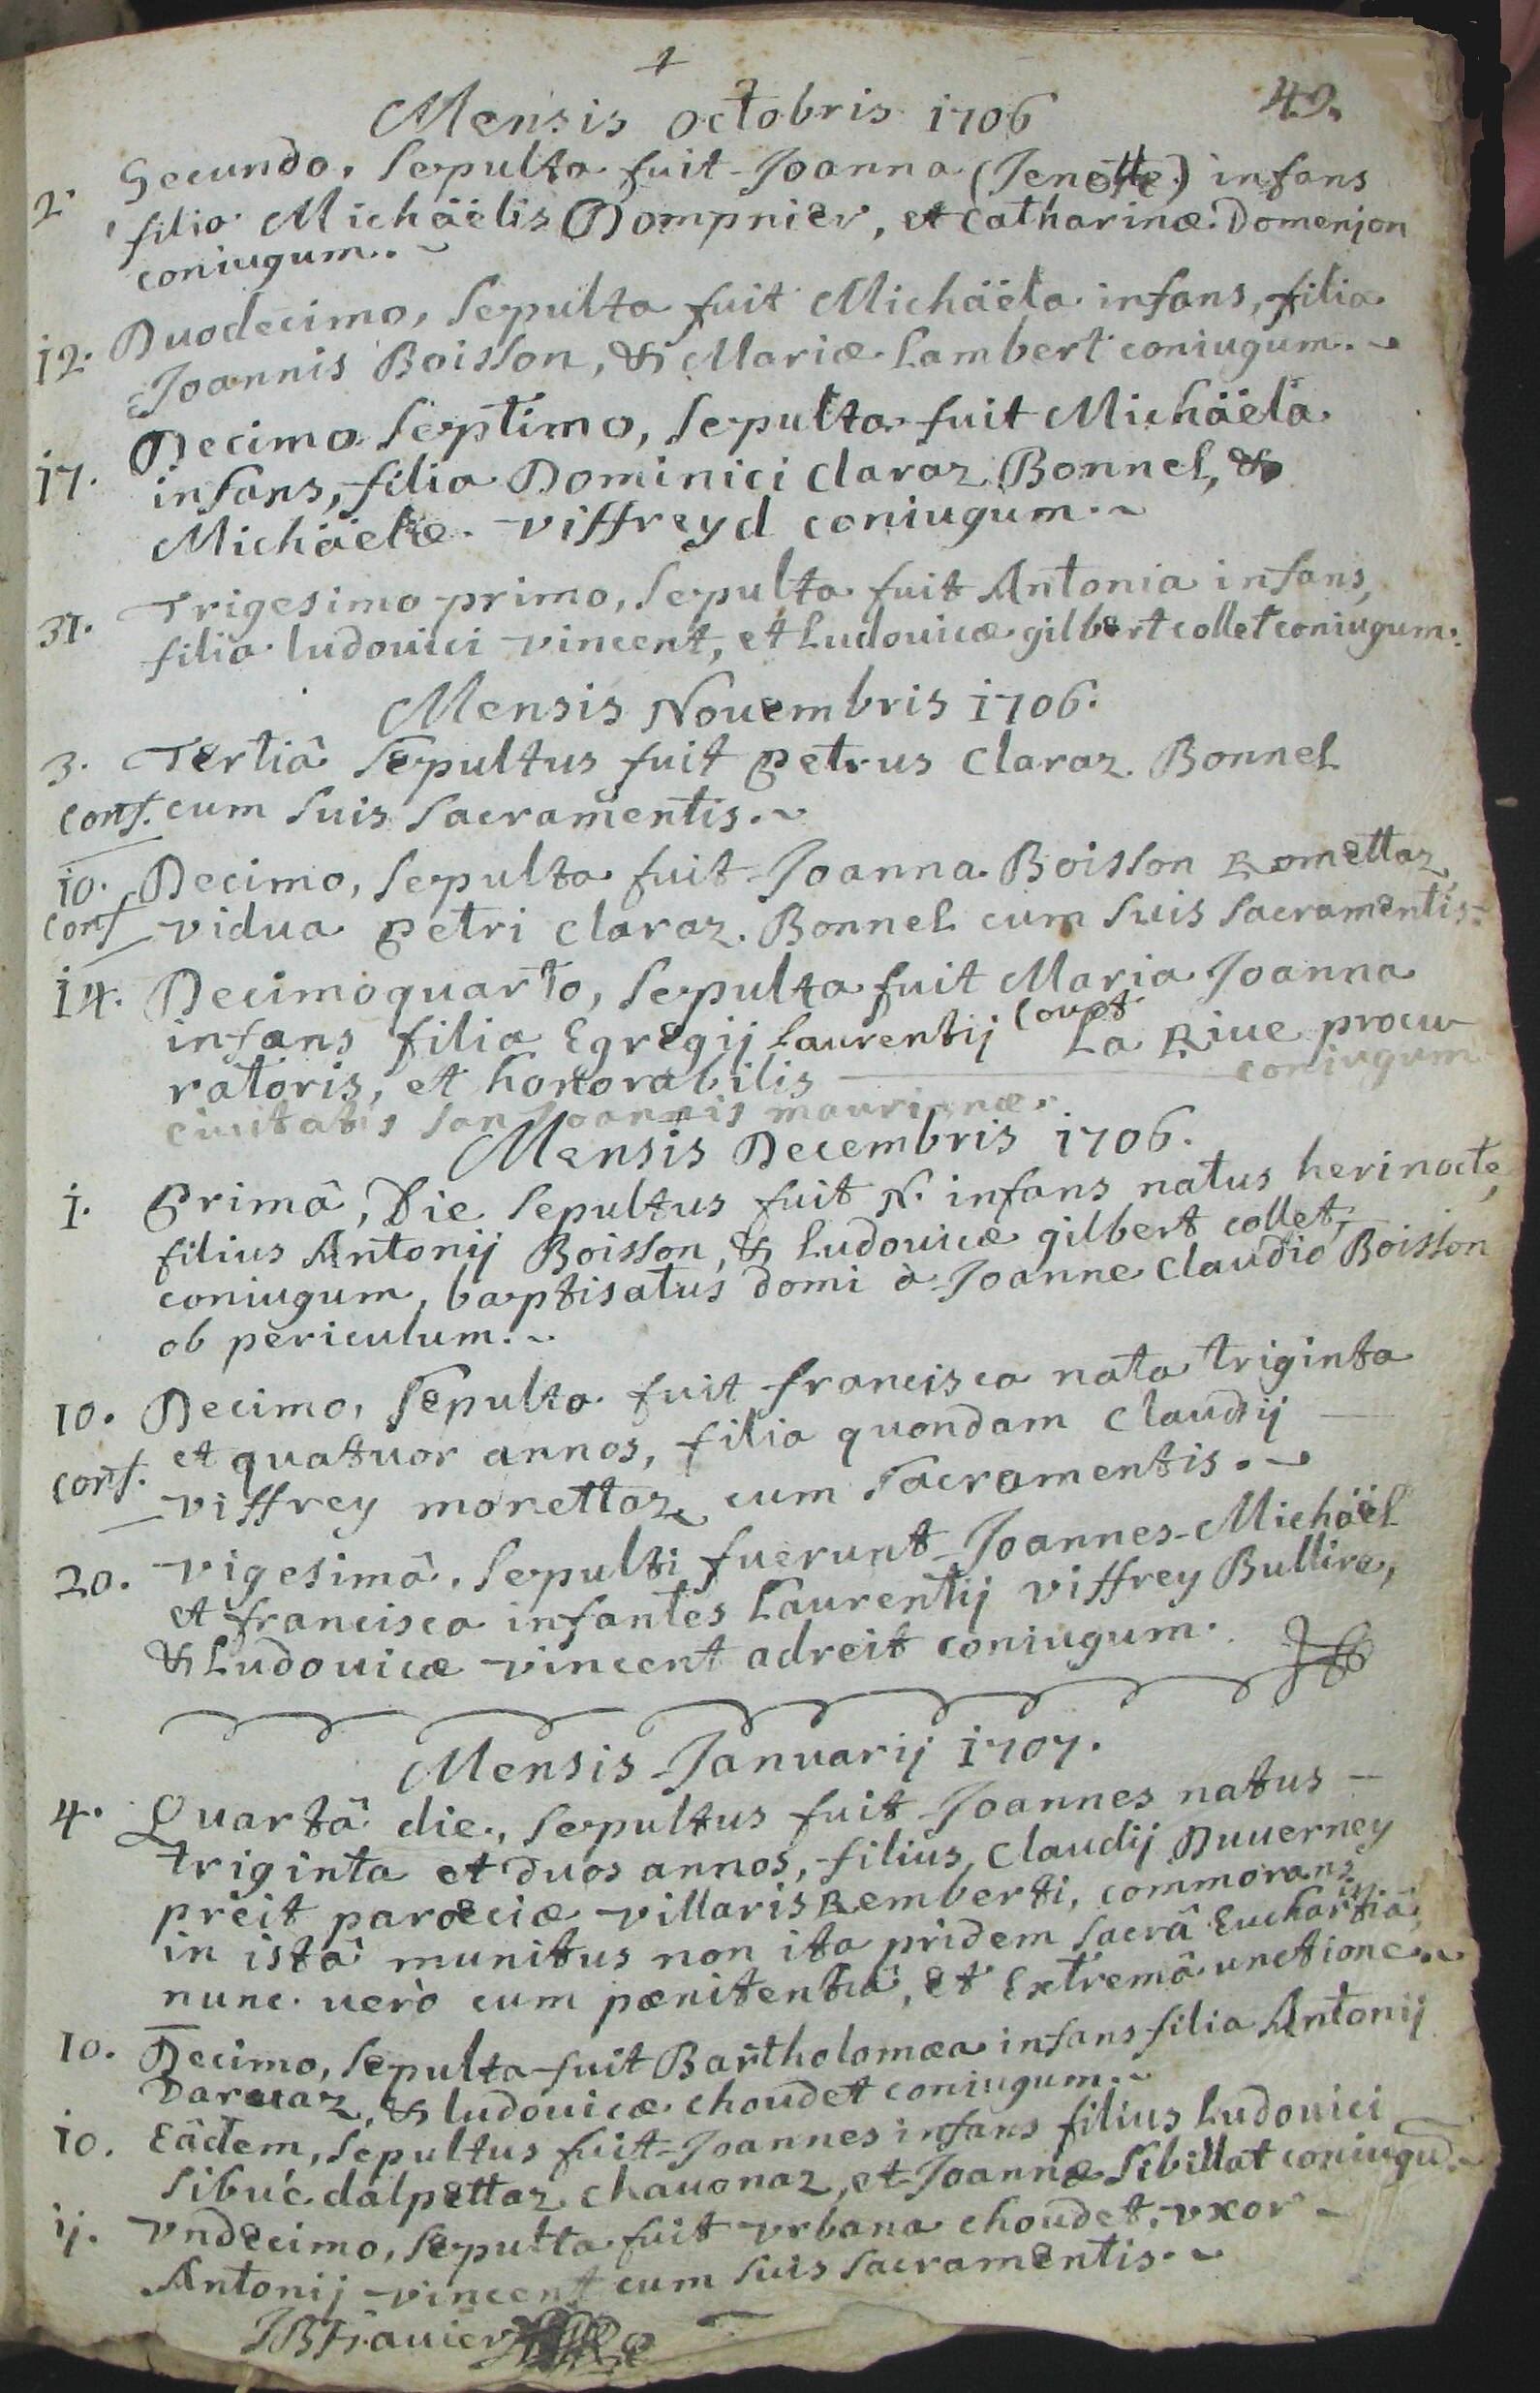 49.
Mensis octobris 1706
2. Secundo, sepulta fuit Joanna (Jenotte) infans
filia Michäelis Dompnier, et catharinæ Domenjon
coniugum.
12. Duodecimo, sepulta fuit Michäela infans, filia
Joannis Boisson, & Mariæ Lambert coniugum.
17. Decimo septimo, sepulta fuit Michäela
infans, filia Dominici claraz Bonnel, &
Michäelæ viffreyd coniugum.
31. Trigesimo primo, sepulta fuit Antonia infans,
filia ludouici vincent, et Ludouicæ gilbert collet coniugum.
Mensis Nouembris 1706.
3. Tertiâ sepultus fuit petrus claraz Bonnel
conf. cum suis sacramentis.
10. Decimo, sepulta fuit Joanna Boisson Romettaz,
conf vidua petri claraz Bonnel cum suis sacramentis.
14. Decimoquarto, sepulta fuit Maria Joanna
infans filia Egregij Laurentij La Riue procu
ratoris, et honorabilis coniugum
ciuitatis san Joannis maurianæ.
Mensis Decembris 1706.
1. Primâ, Die sepultus fuit N. infans natus heri nocte,
filius Antonij Boisson, & Ludouicæ gilbert collet,
coniugum, baptisatus domi à Joanne claudio Boisson
ob periculum.
10. Decimo, sepulta fuit francisca nata triginta
et quatuor annos, filia quondam claudij
conf. viffrey morettaz cum sacramentis.
20. vigesimâ, sepulti fuerunt Joannes-Michäel
et francisca infantes Laurentij viffrey Bullire,
& Ludouicæ vincent adreit coniugum.
Mensis Januarij 1707.
4. Quartâ die, sepultus fuit Joannes natus
triginta et duos annos, filius claudij Duuerney
preit parœciæ villaris Remberti, commorans
in istâ munitus non ita pridem sacrâ Eucharistiâ,
nunc uerò cum pænitentiâ, et Extremâ unctione.
10. Decimo, sepulta fuit Bartholomæa infans filia Antonij
Daruaz, & ludouicæ choudet coniugum.
10. Eâdem, sepultus fuit Joannes infans filius Ludouici
sibué dalpettaz chauonaz, et Joannæ sibillat coniugū.
ij. vndecimo, sepulta fuit vrbana choudet, vxor
Antonij vincent cum suis sacramentis.